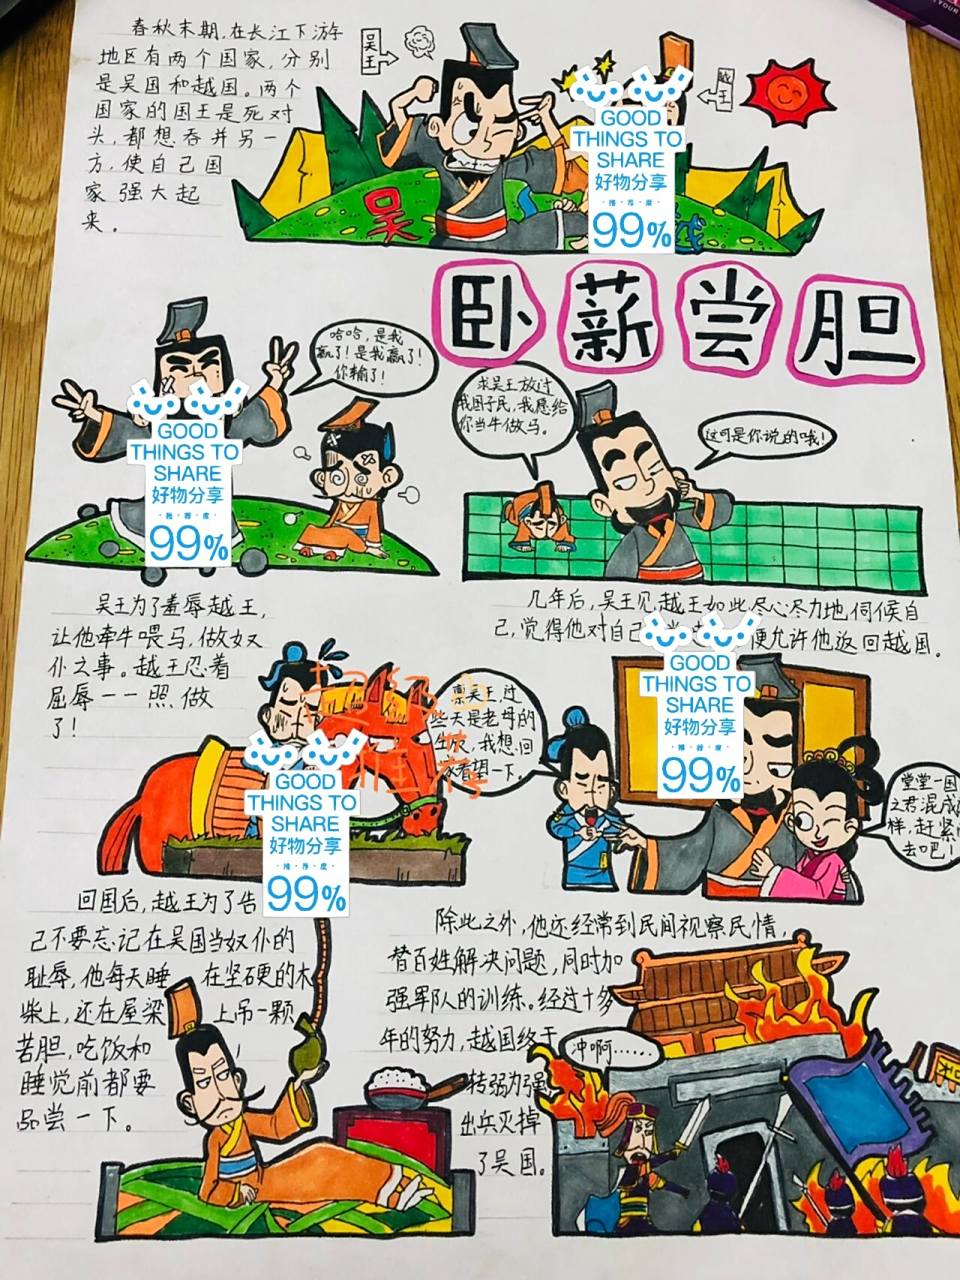 春秋末期,在长江下游
地区有两个国家,分别
是吴国和越国。两个
国家的国王是死对
头,都想吞并另一
方,使自己国
家强大起
来。
吴王
越王
吴
越
GOOD
THINGS TO
SHARE
好物分享
·推·荐·度·
99%
卧薪尝胆
哈哈,是我
赢了!是我赢了!
你输了!
GOOD
THINGS TO
SHARE
好物分享
·推·荐·度·
99%
求吴王放过
我国子民,我愿给
你当牛做马。
这可是你说的哦!
吴王为了羞辱越王,
让他牵牛喂马,做奴
仆之事。越王忍着
屈辱一一照做
了!
几年后,吴王见越王如此尽心尽力地伺候自
己,觉得他对自己 便允许他返回越国。
GOOD
THINGS TO
SHARE
好物分享
·推·荐·度·
99%
超级
推荐
禀吴王,过
些天是老母的
生日,我想回
家看望一下。
GOOD
THINGS TO
SHARE
好物分享
·推·荐·度·
99%
堂堂一国
之君混成
样,赶紧
去吧!
回国后,越王为了告
己不要忘记在吴国当奴仆的
耻辱,他每天睡 在坚硬的木
柴上,还在屋梁 上吊一颗
苦胆,吃饭和
睡觉前都要
品尝一下。
除此之外,他还经常到民间视察民情,
替百姓解决问题,同时加
强军队的训练。经过十多
年的努力,越国终于
转弱为强
出兵灭掉
了吴国。
冲啊……